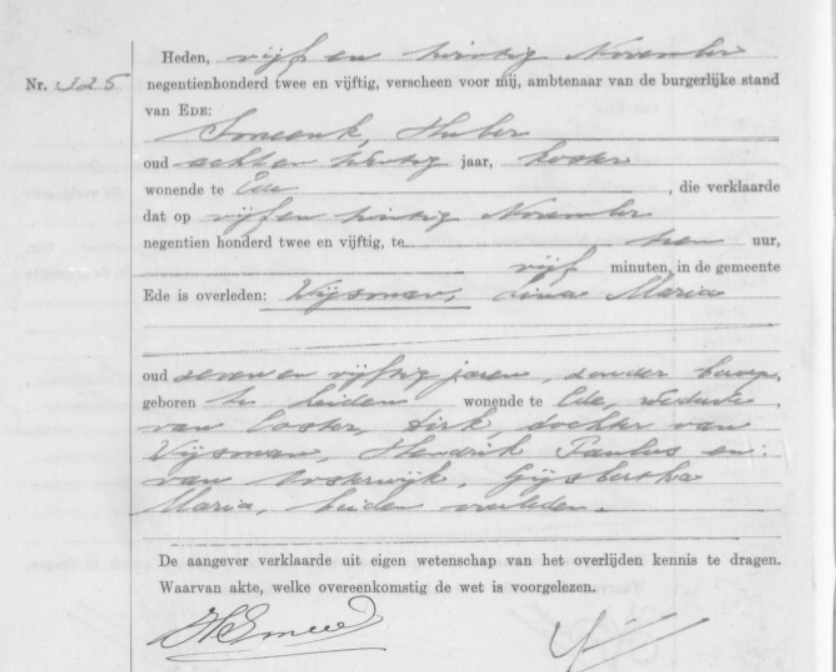 Heden, vijf en twintig November
Nr. 325 negentienhonderd twee en vijftig, verscheen voor mij, ambtenaar van de burgerlijke stand
van EDE:
Smeenk, Huber
oud acht en twintig jaar, koster
wonende te Ede , die verklaarde
dat op vijf en twintig November
negentien honderd twee en vijftig, te tien uur,
vijf minuten, in de gemeente
Ede is overleden: Wijsman, Lina Maria
oud zeven en vijftig jaren, zonder beroep,
geboren te Leiden wonende te Ede, weduwe ,
van Coster, Dirk, dochter van
Wijsman, Hendrik Paulus en:
van Oosterwijk, Gijsbertha
Maria, beiden overleden.
De aangever verklaarde uit eigen wetenschap van het overlijden kennis te dragen.
Waarvan akte, welke overeenkomstig de wet is voorgelezen.